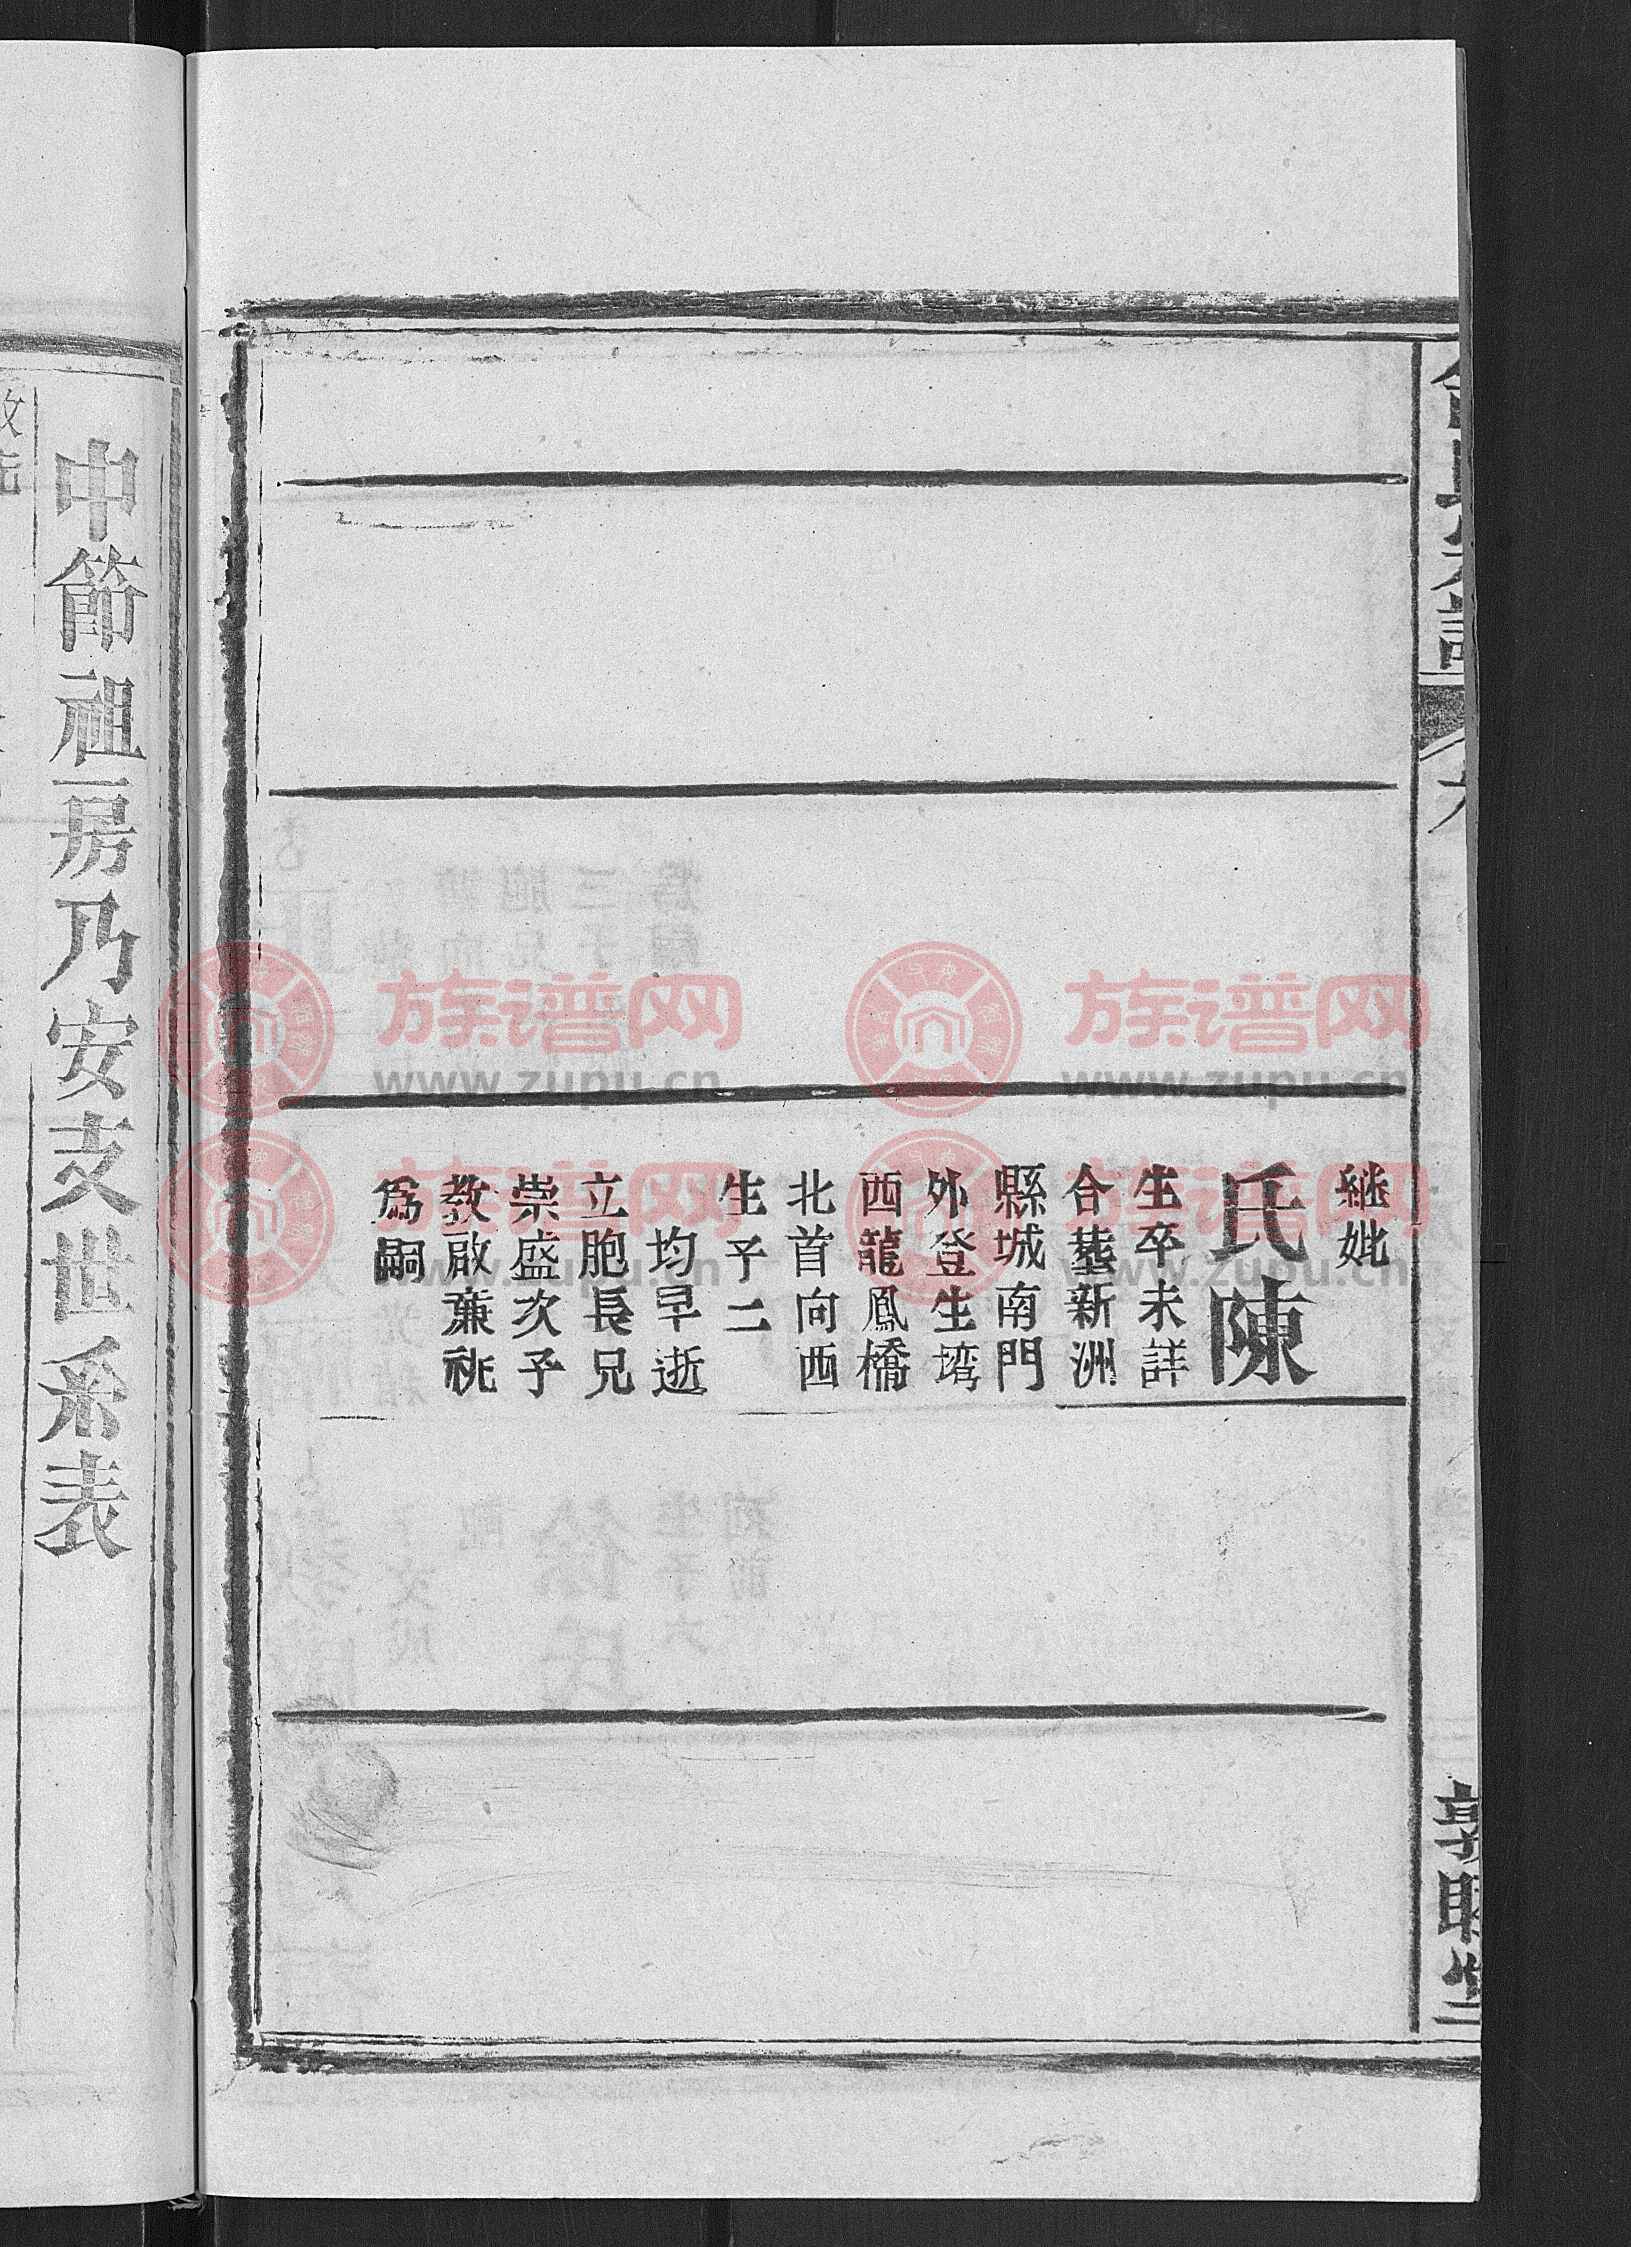 繼妣
氏陳
生卒未詳
合塟新洲
縣城南門
外登生塆
西龍鳳橋
北首向西
生子二
均早逝
立胞長兄
崇盛次子
教啟兼祧
爲嗣
中節祖房乃安支世系表
族谱网
www.zupu.cn
族谱网
www.zupu.cn
族谱网
www.zupu.cn
族谱网
www.zupu.cn